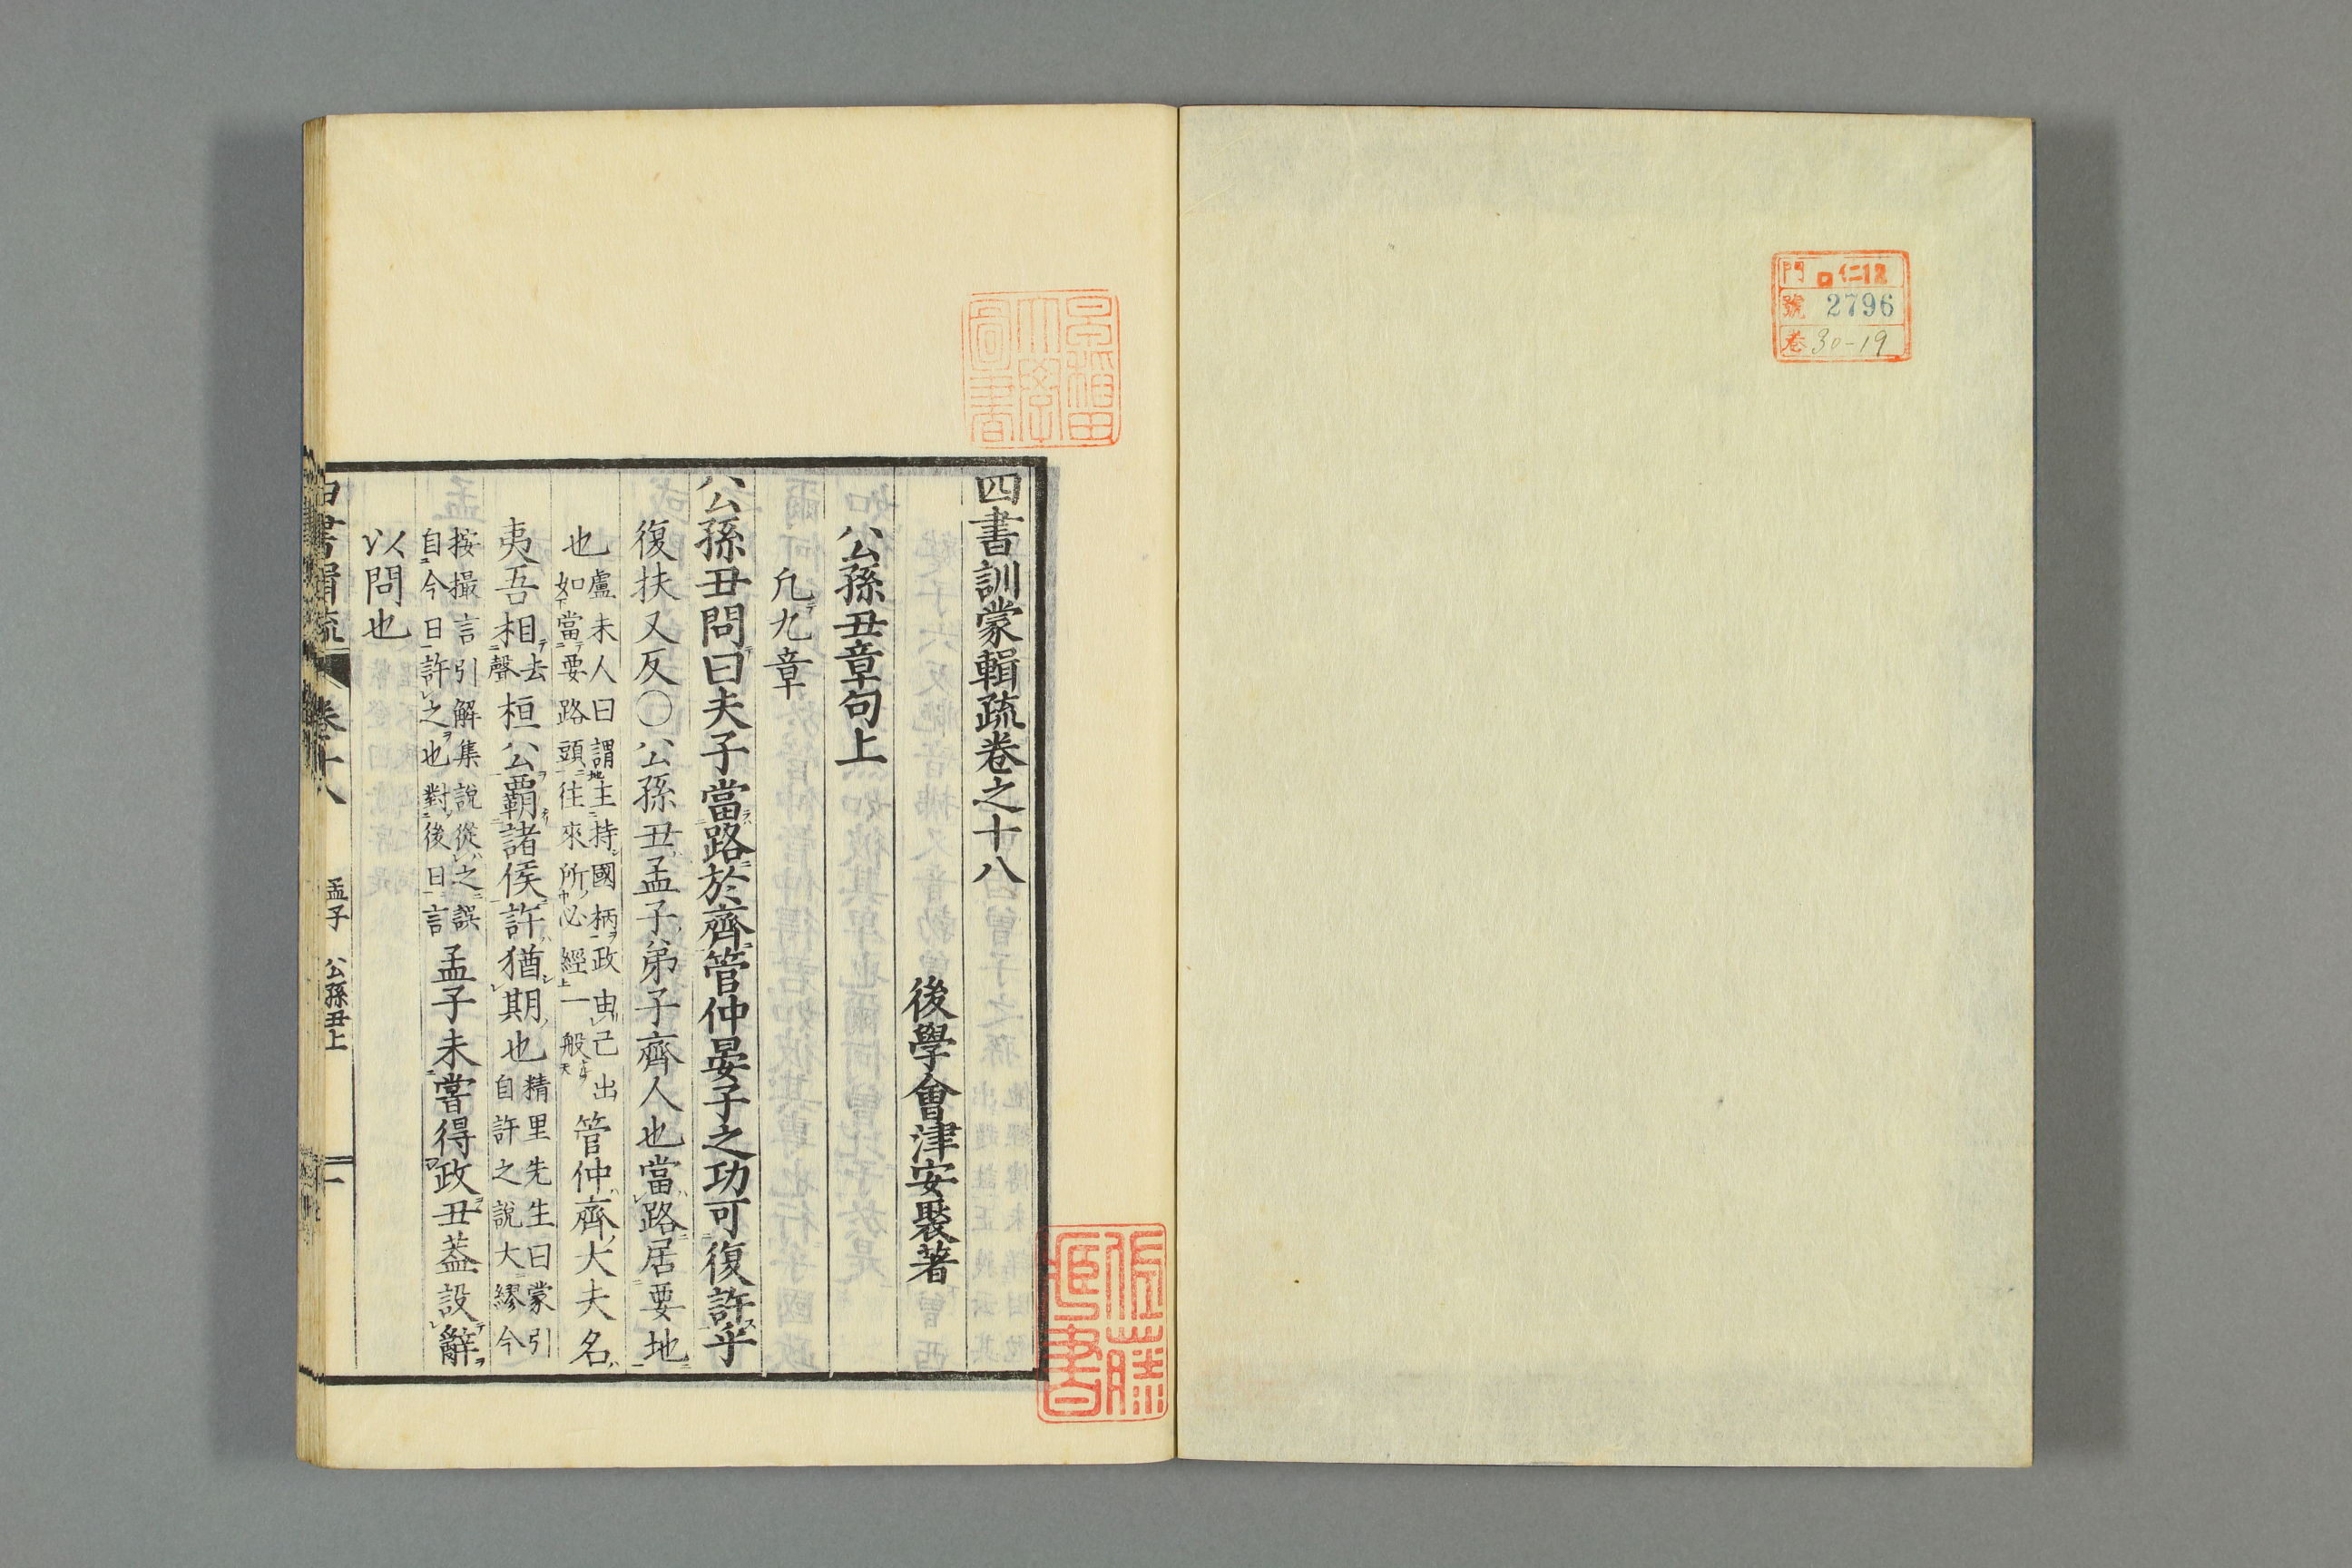 門 ロ仁12
號 2796
巻 30-19
早稲田大學圖書
四書訓蒙輯疏卷之十八
後學會津安褧著
公孫丑章句上
凡九章
公孫丑問曰夫子當路於齊管仲晏子之功可復許乎
復扶又反〇公孫丑孟子弟子齊人也當路居要地
也盧未人曰謂主持國柄政由己出如當要路頭往來所必經一般管仲齊大夫名
夷吾相去聲桓公霸諸侯許猶期也精里先生曰蒙引自許之說大繆今
按撮言引解集說從之誤自今日許之也對後日言孟子未嘗得政丑蓋設辭
以問也
四書輯疏 卷十八 孟子 公孫丑上 一